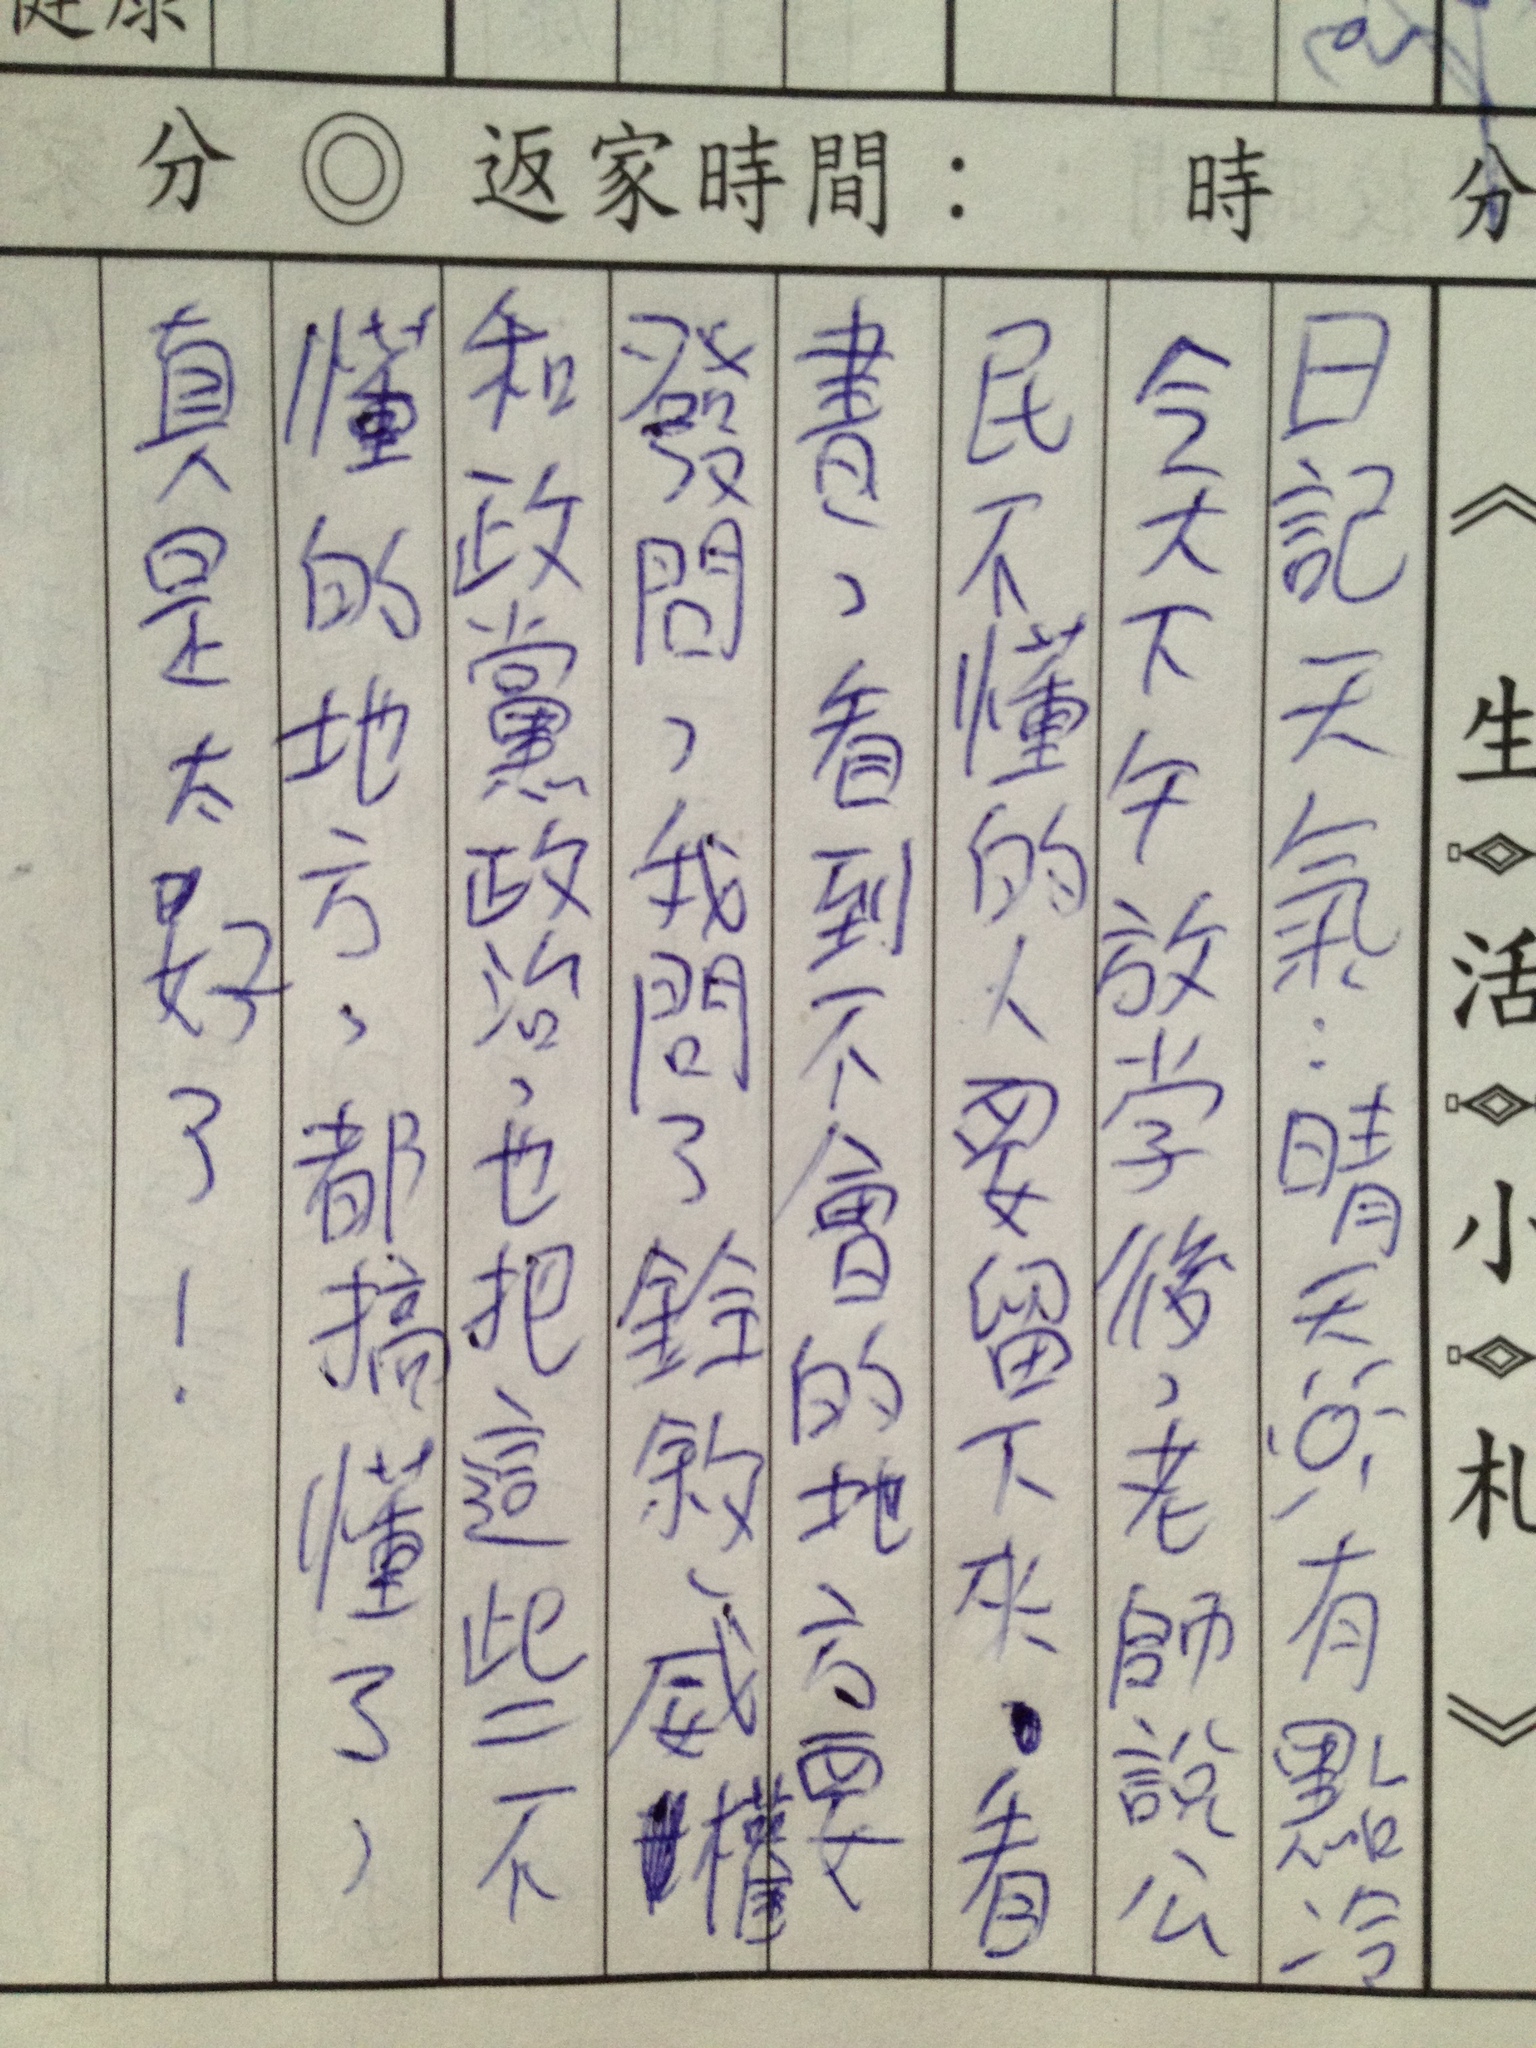 健康
分◎返家時間：　時　分
《生活小札》
日記天氣：晴天 有點冷
今天下午放学後，老師說公
民不懂的人要留下來，看
書，看到不會的地方要
發問，我問了銓敘、威權
和政黨政治，也把這些不
懂的地方，都搞懂了，
真是太好了！